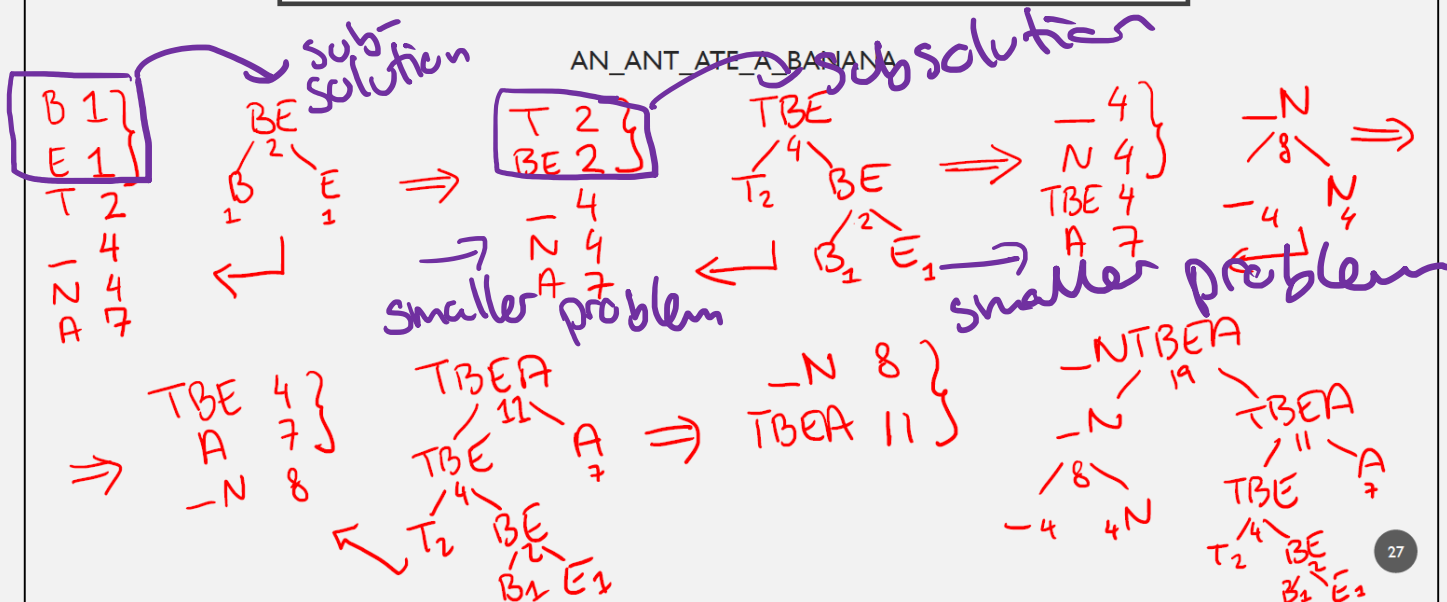 AN_ANT_ATE_A_BANANA
sub-
solution
subsolution
B 1
E 1
T 2
_ 4
N 4
A 7
BE
2
B E
1 1
T 2
BE 2
_ 4
N 4
A 7
smaller problem
TBE
4
T2 BE
2
B1 E1
_ 4
N 4
TBE 4
A 7
smaller problem
_N
8
_ 4 N
4
TBE 4
A 7
_N 8
TBEA
11
TBE A
4 7
T2 BE
2
B1 E1
_N 8
TBEA 11
_NTBEA
19
_N TBEA
8 11
_4 4N TBE A
4 7
T2 BE
2
B1 E1
27